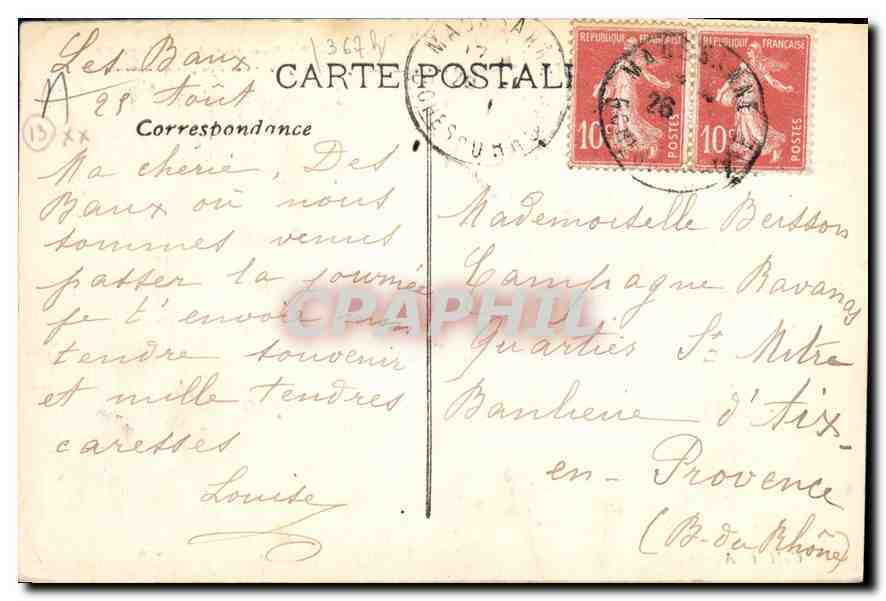 Les Baux
25 Août
1367
CARTE POSTALE
13
xx
Correspondance
Ma chérie, Des
Baux où nous
sommes venus
passer la journée
je t'envoie un
tendre souvenir
et mille tendres
caresses
Louise
REPUBLIQUE FRANÇAISE
10c
POSTES
REPUBLIQUE FRANÇAISE
10c
POSTES
26
Mademoiselle Beisson
Campagne Ravanas
Quartier St Mitre
Banlieue d'Aix-
en-Provence
(B-du Rhône)
CPAPHIL